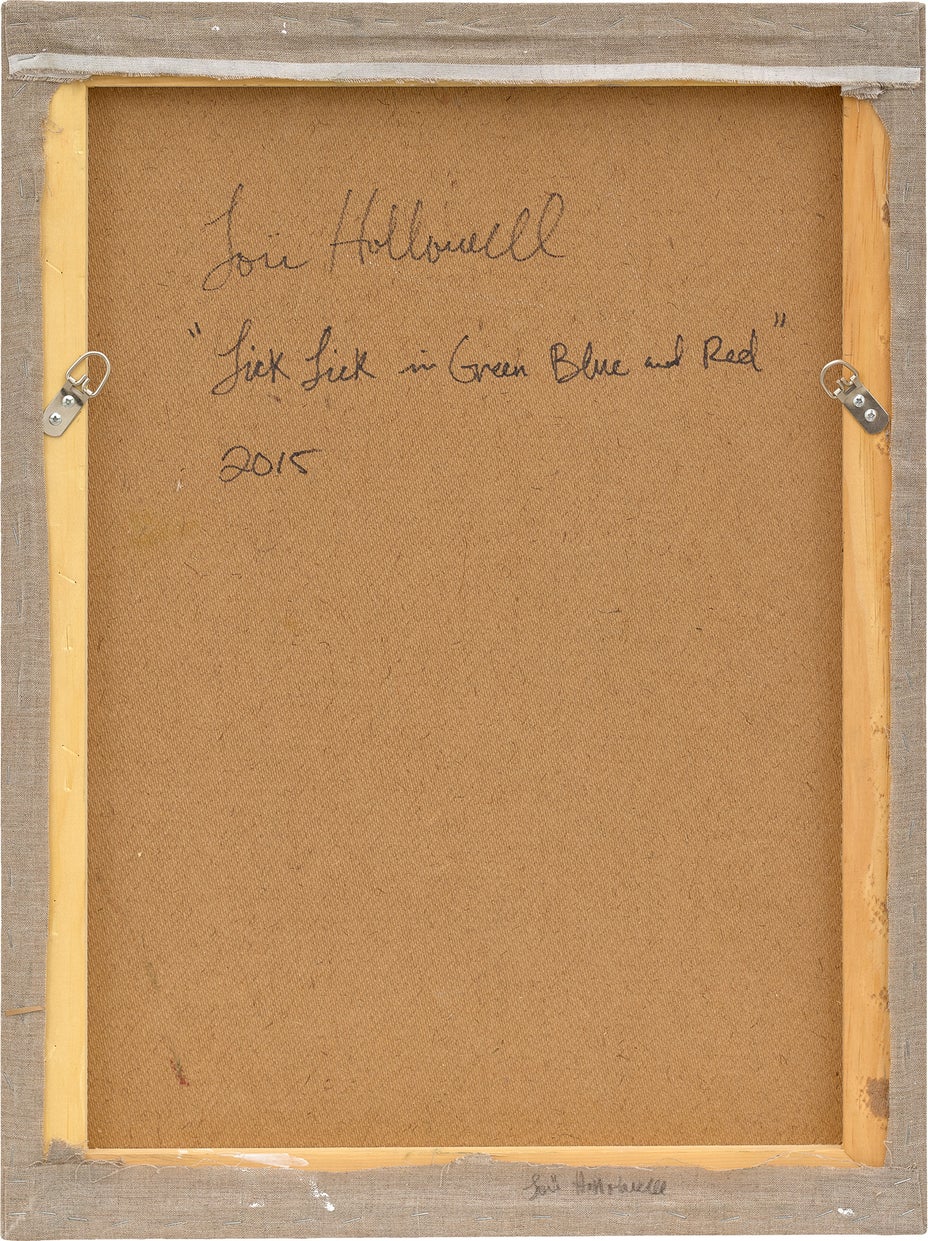 Loie Hollowell
"Lick Lick in Green Blue and Red"
2015
Loie Hollowell